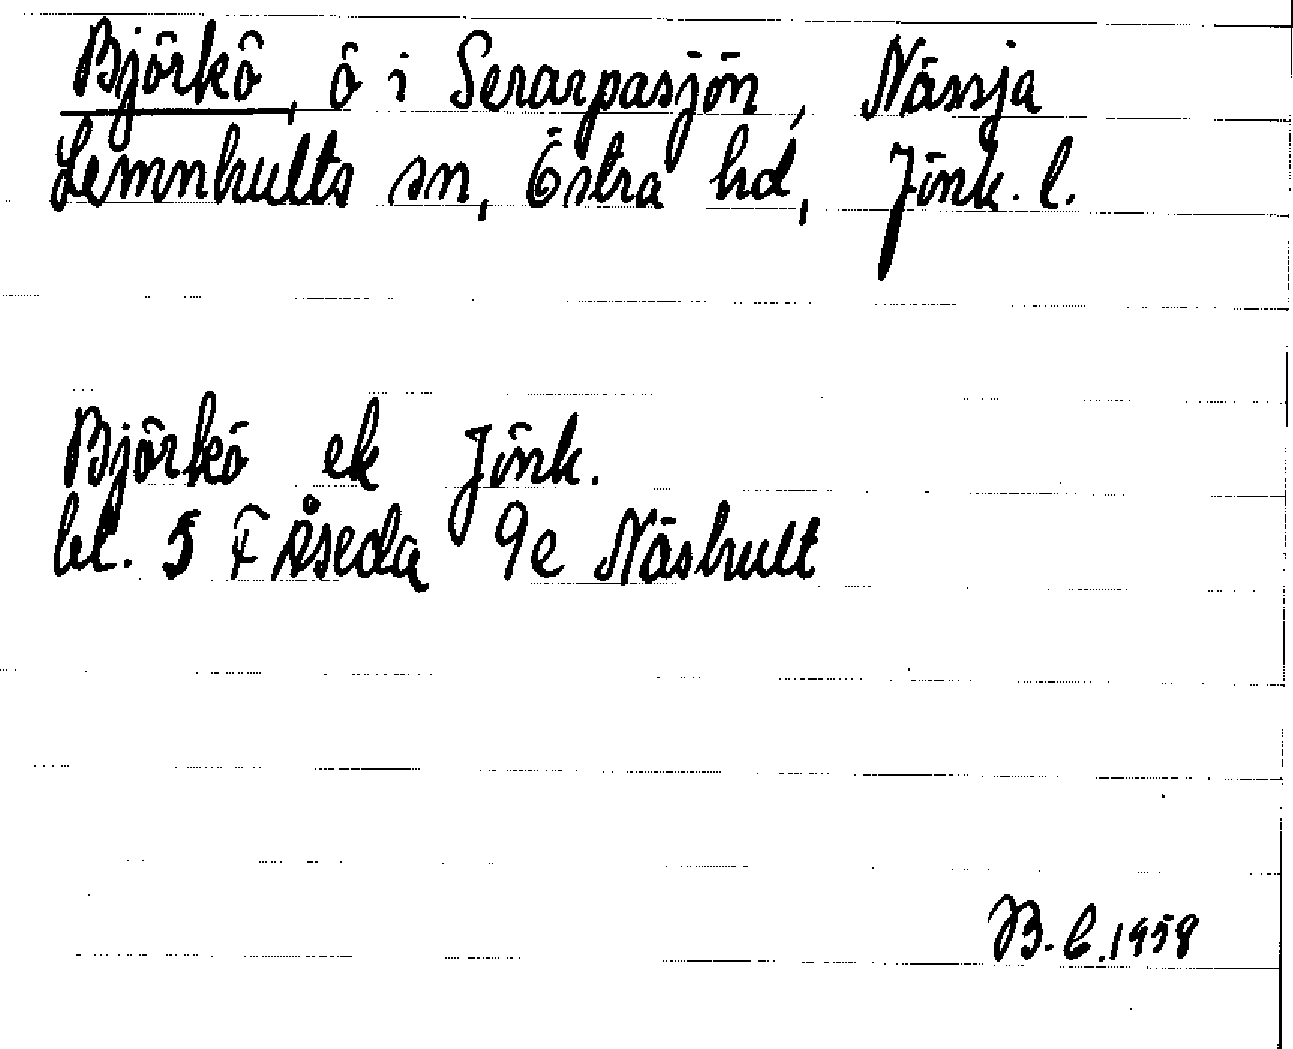 Björkö, ö i Serarpasjön, Nässja
Lemnhults sn, Östra hd, Jönk. l.
Björkö ek Jönk.
bl. 5 F Åseda 9e Näshult
B. C. 1958